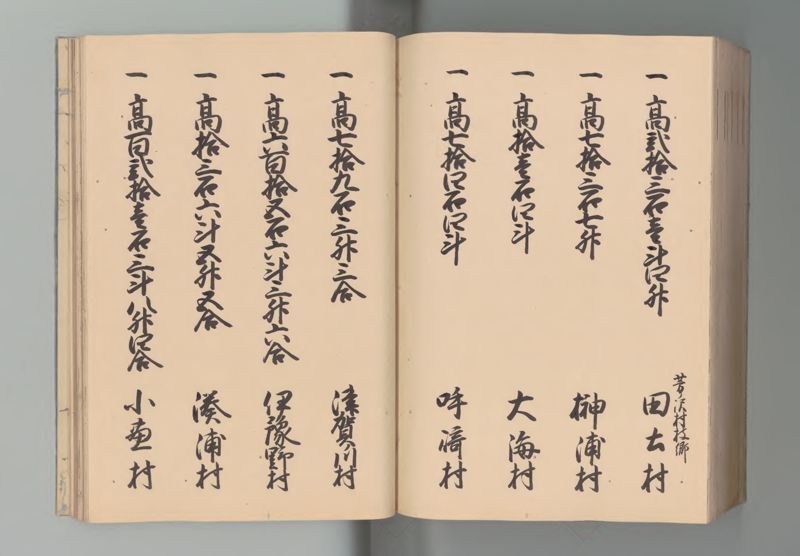 一 高弐拾三石壱斗四升 沢村枝郷 田土村
一 高七拾三石七升 榊浦村
一 高拾壱石四斗 大海村
一 高七拾四石四斗 呼崎村
一 高七拾九石三升三合 賀川村
一 高六百拾五石六斗三升六合 伊豫野村
一 高拾三石六斗五升五合 湊浦村
一 高百弐拾壱石三斗八升四合 小 村